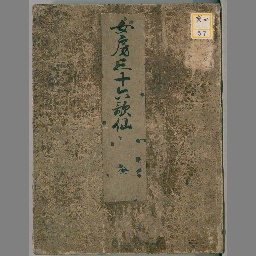 女房三十六歌仙